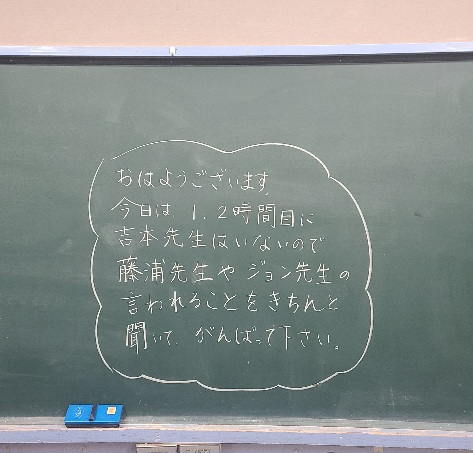 おはようございます。
今日は 1, 2時間目に
吉本先生はいないので
藤浦先生や ジョン先生の
言われることをきちんと
聞いて、がんばって下さい。